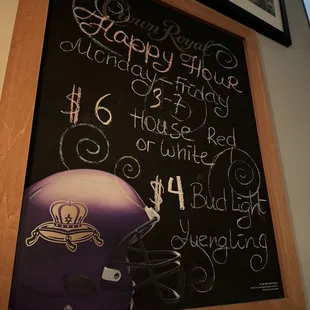 Crown Royal
Happy Hour
Monday-Friday
3-7
$6 House Red
or white
$4 Bud Light
Yuengling